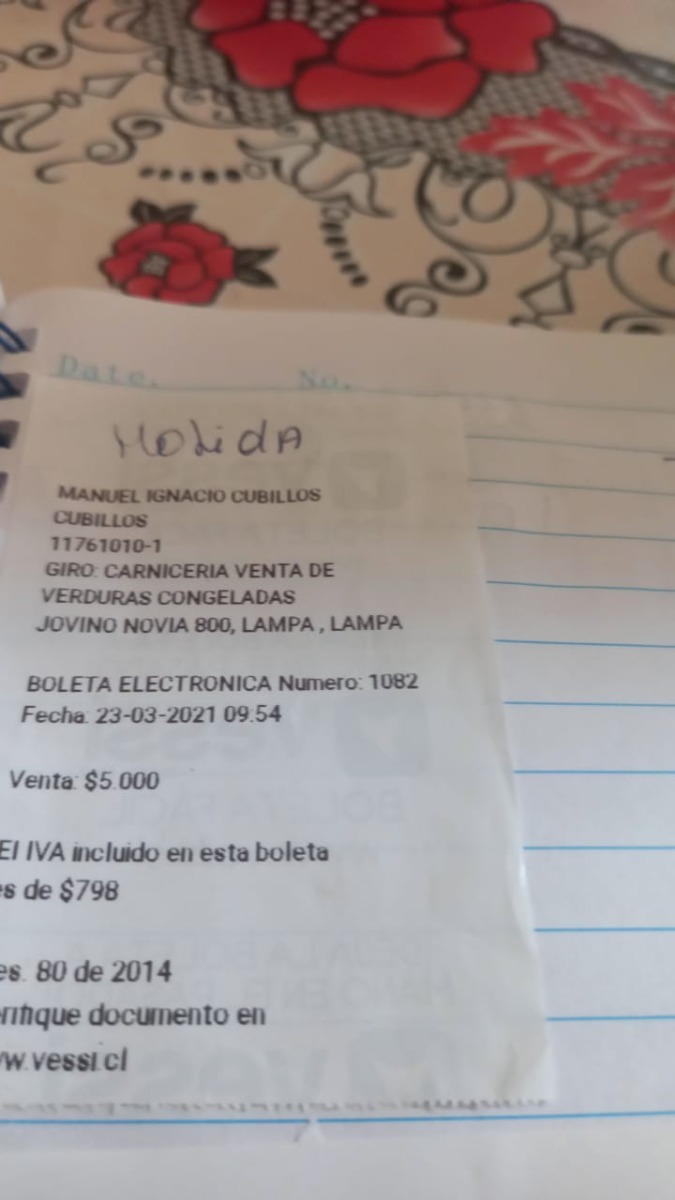 Date. No.
Molida
MANUEL IGNACIO CUBILLOS
CUBILLOS
11761010-1
GIRO: CARNICERIA VENTA DE
VERDURAS CONGELADAS
JOVINO NOVIA 800, LAMPA , LAMPA
BOLETA ELECTRONICA Numero: 1082
Fecha: 23-03-2021 09:54
Venta: $5.000
El IVA incluido en esta boleta
es de $798
es. 80 de 2014
erifique documento en
ww.vessi.cl